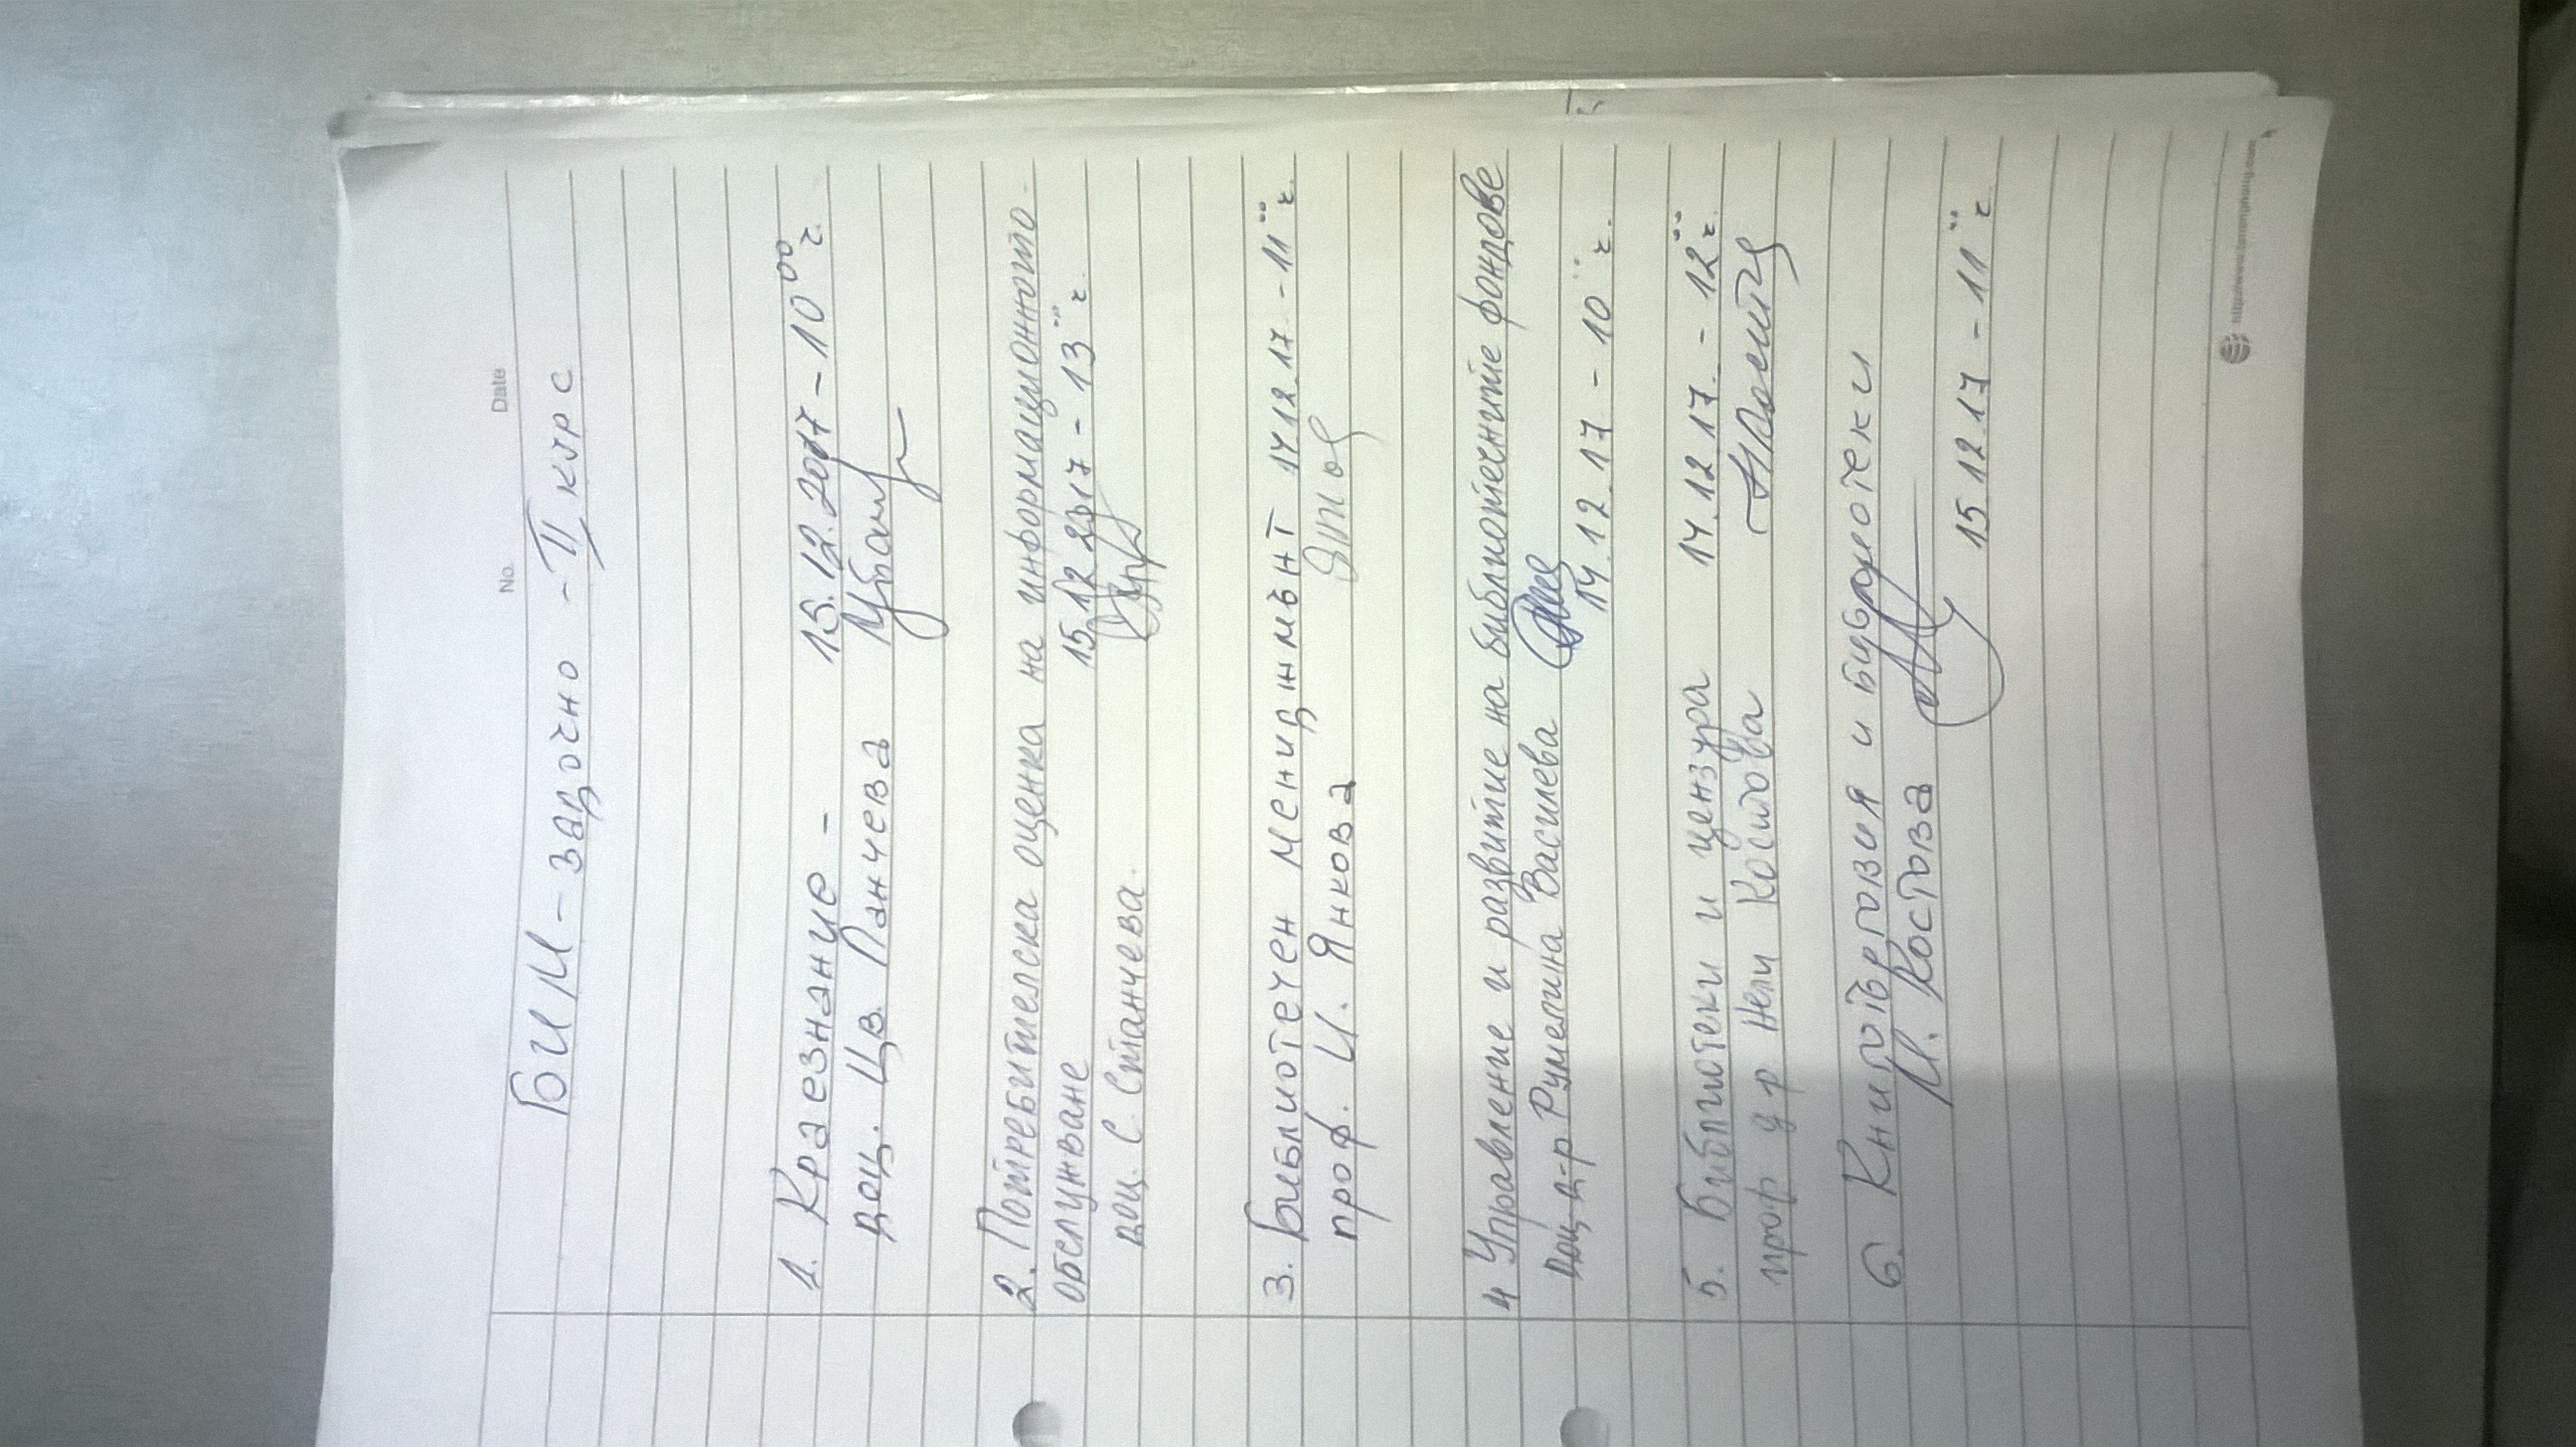 No.
Date
БИМ - задочно - II курс
1. Краезнание - 15.12.2017 - 10 00 ч.
доц. Цв. Панчева
2. Потребителска оценка на информационното
обслужване 15.12 2017 - 13 ч.
доц. С. Станчева.
3. Библиотечен мениджмънт 14 12.17 - 11 ч.
проф. И. Янкова
4 Управление и развитие на библиотечните фондове
Доц. д-р Румелина Василева 14.12.17 - 10 ч.
5. Библиотеки и цензура 14.12.17. - 12 ч.
проф д р Нели Костова
6. Книготърговия и библиотеки
И. Костова 15.12.17 - 11 ч